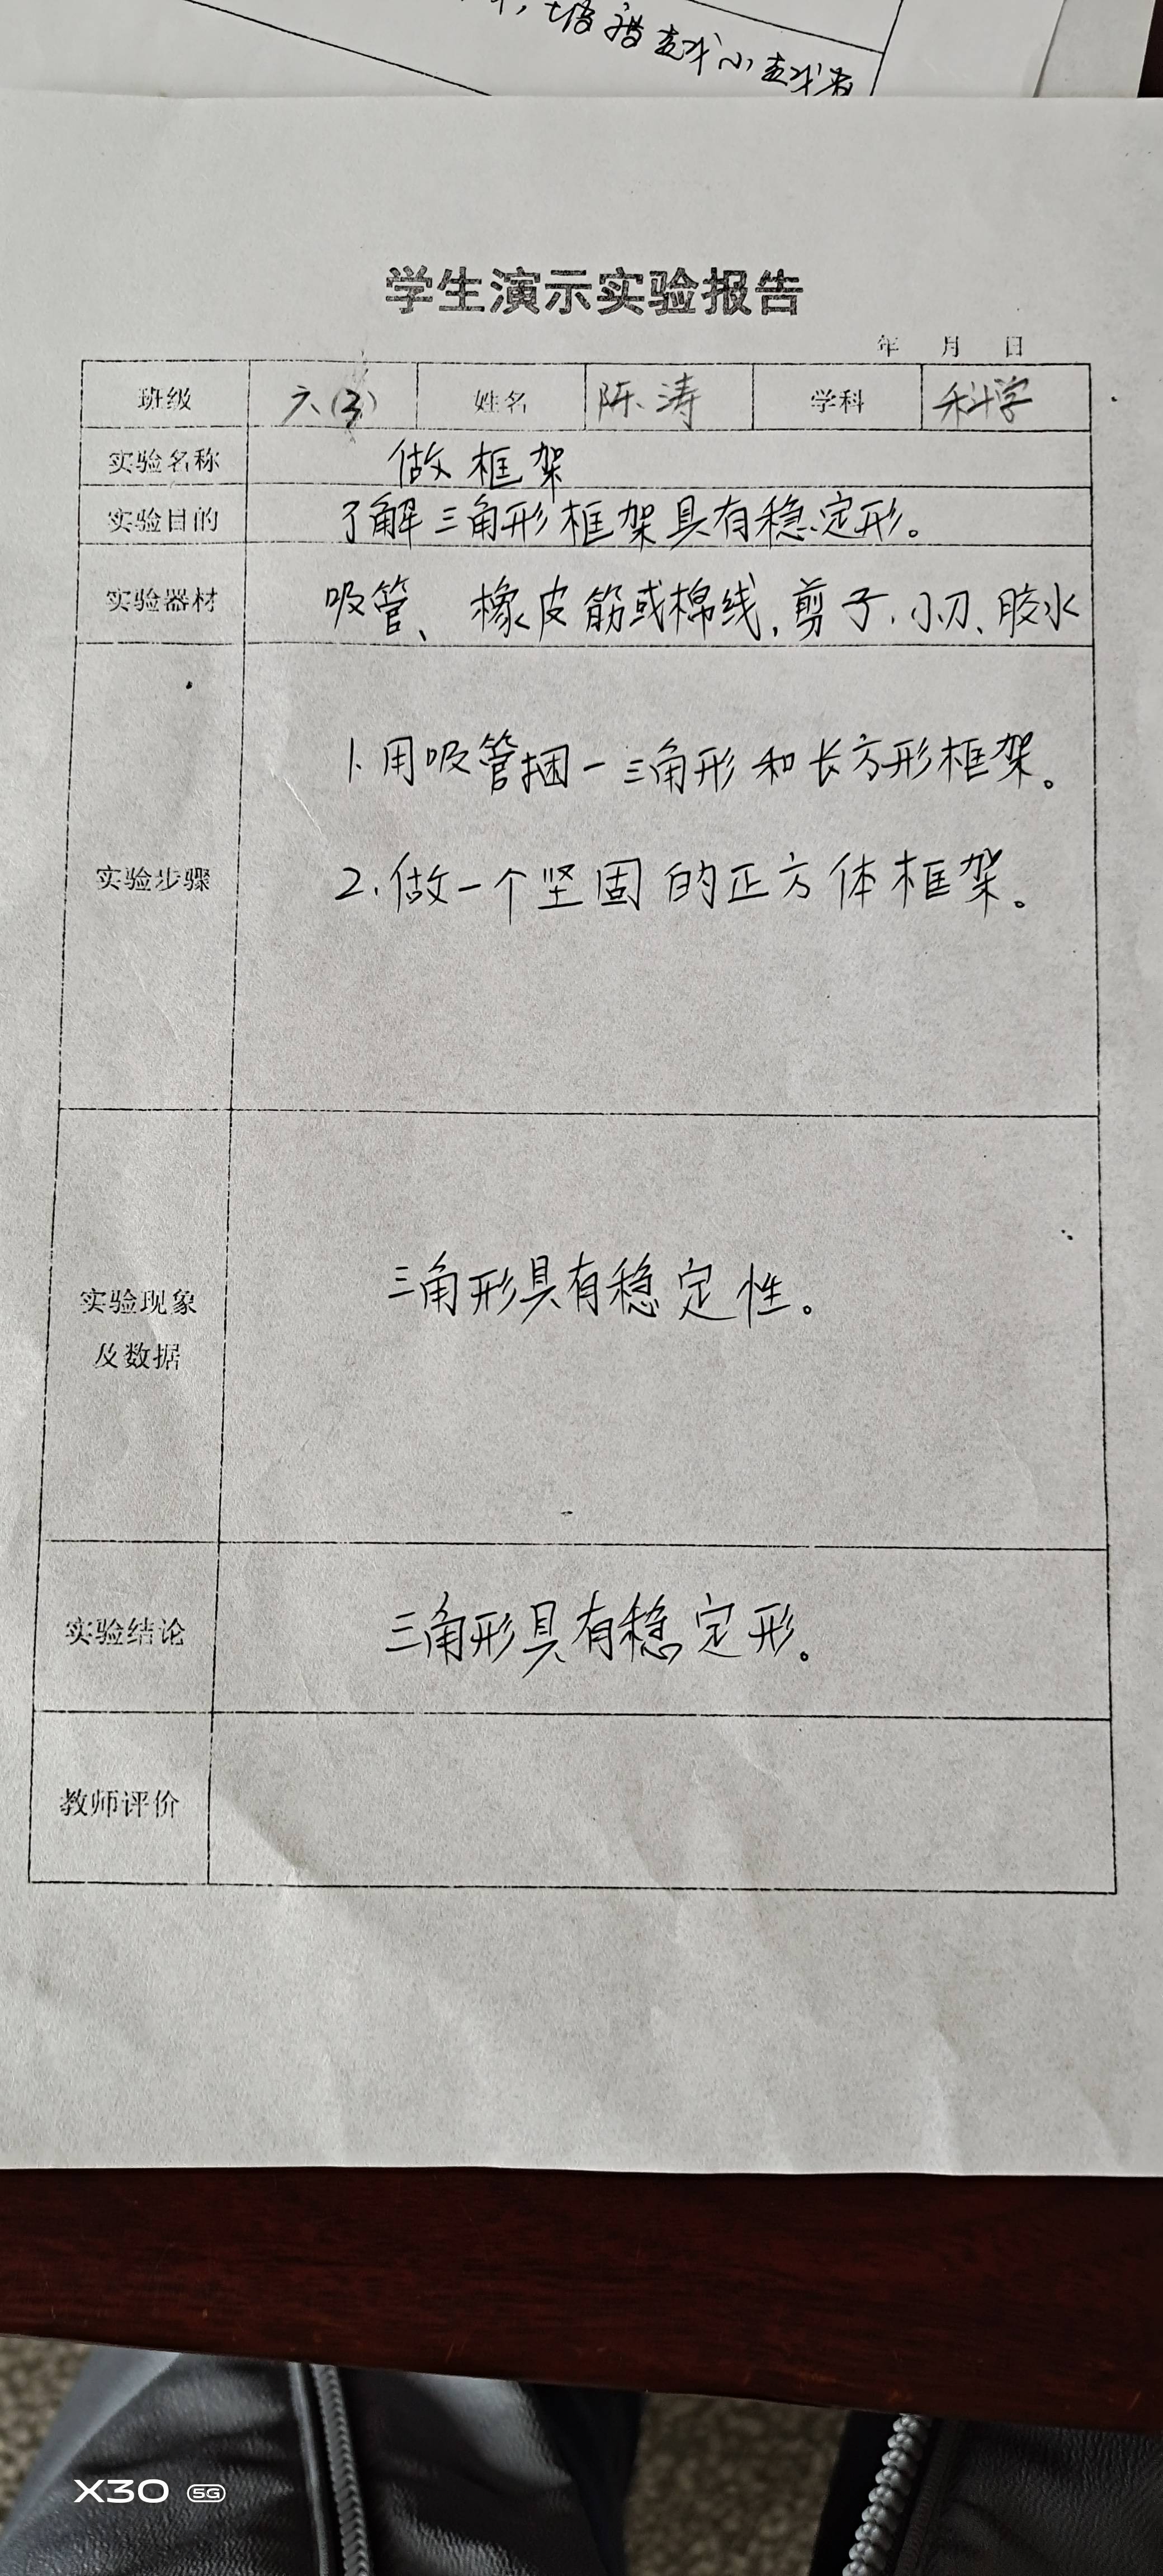 培措
学生演示实验报告
年 月 日
班级 六(3) 姓名 陈涛 学科 科学
实验名称 做框架
实验目的 了解三角形框架具有稳定形。
实验器材 吸管、橡皮筋或棉线,剪子、小刀、胶水
1.用吸管捆一三角形和长方形框架。
实验步骤 2.做一个坚固的正方体框架。
实验现象
及数据 三角形具有稳定性。
实验结论 三角形具有稳定形。
教师评价
X30 5G